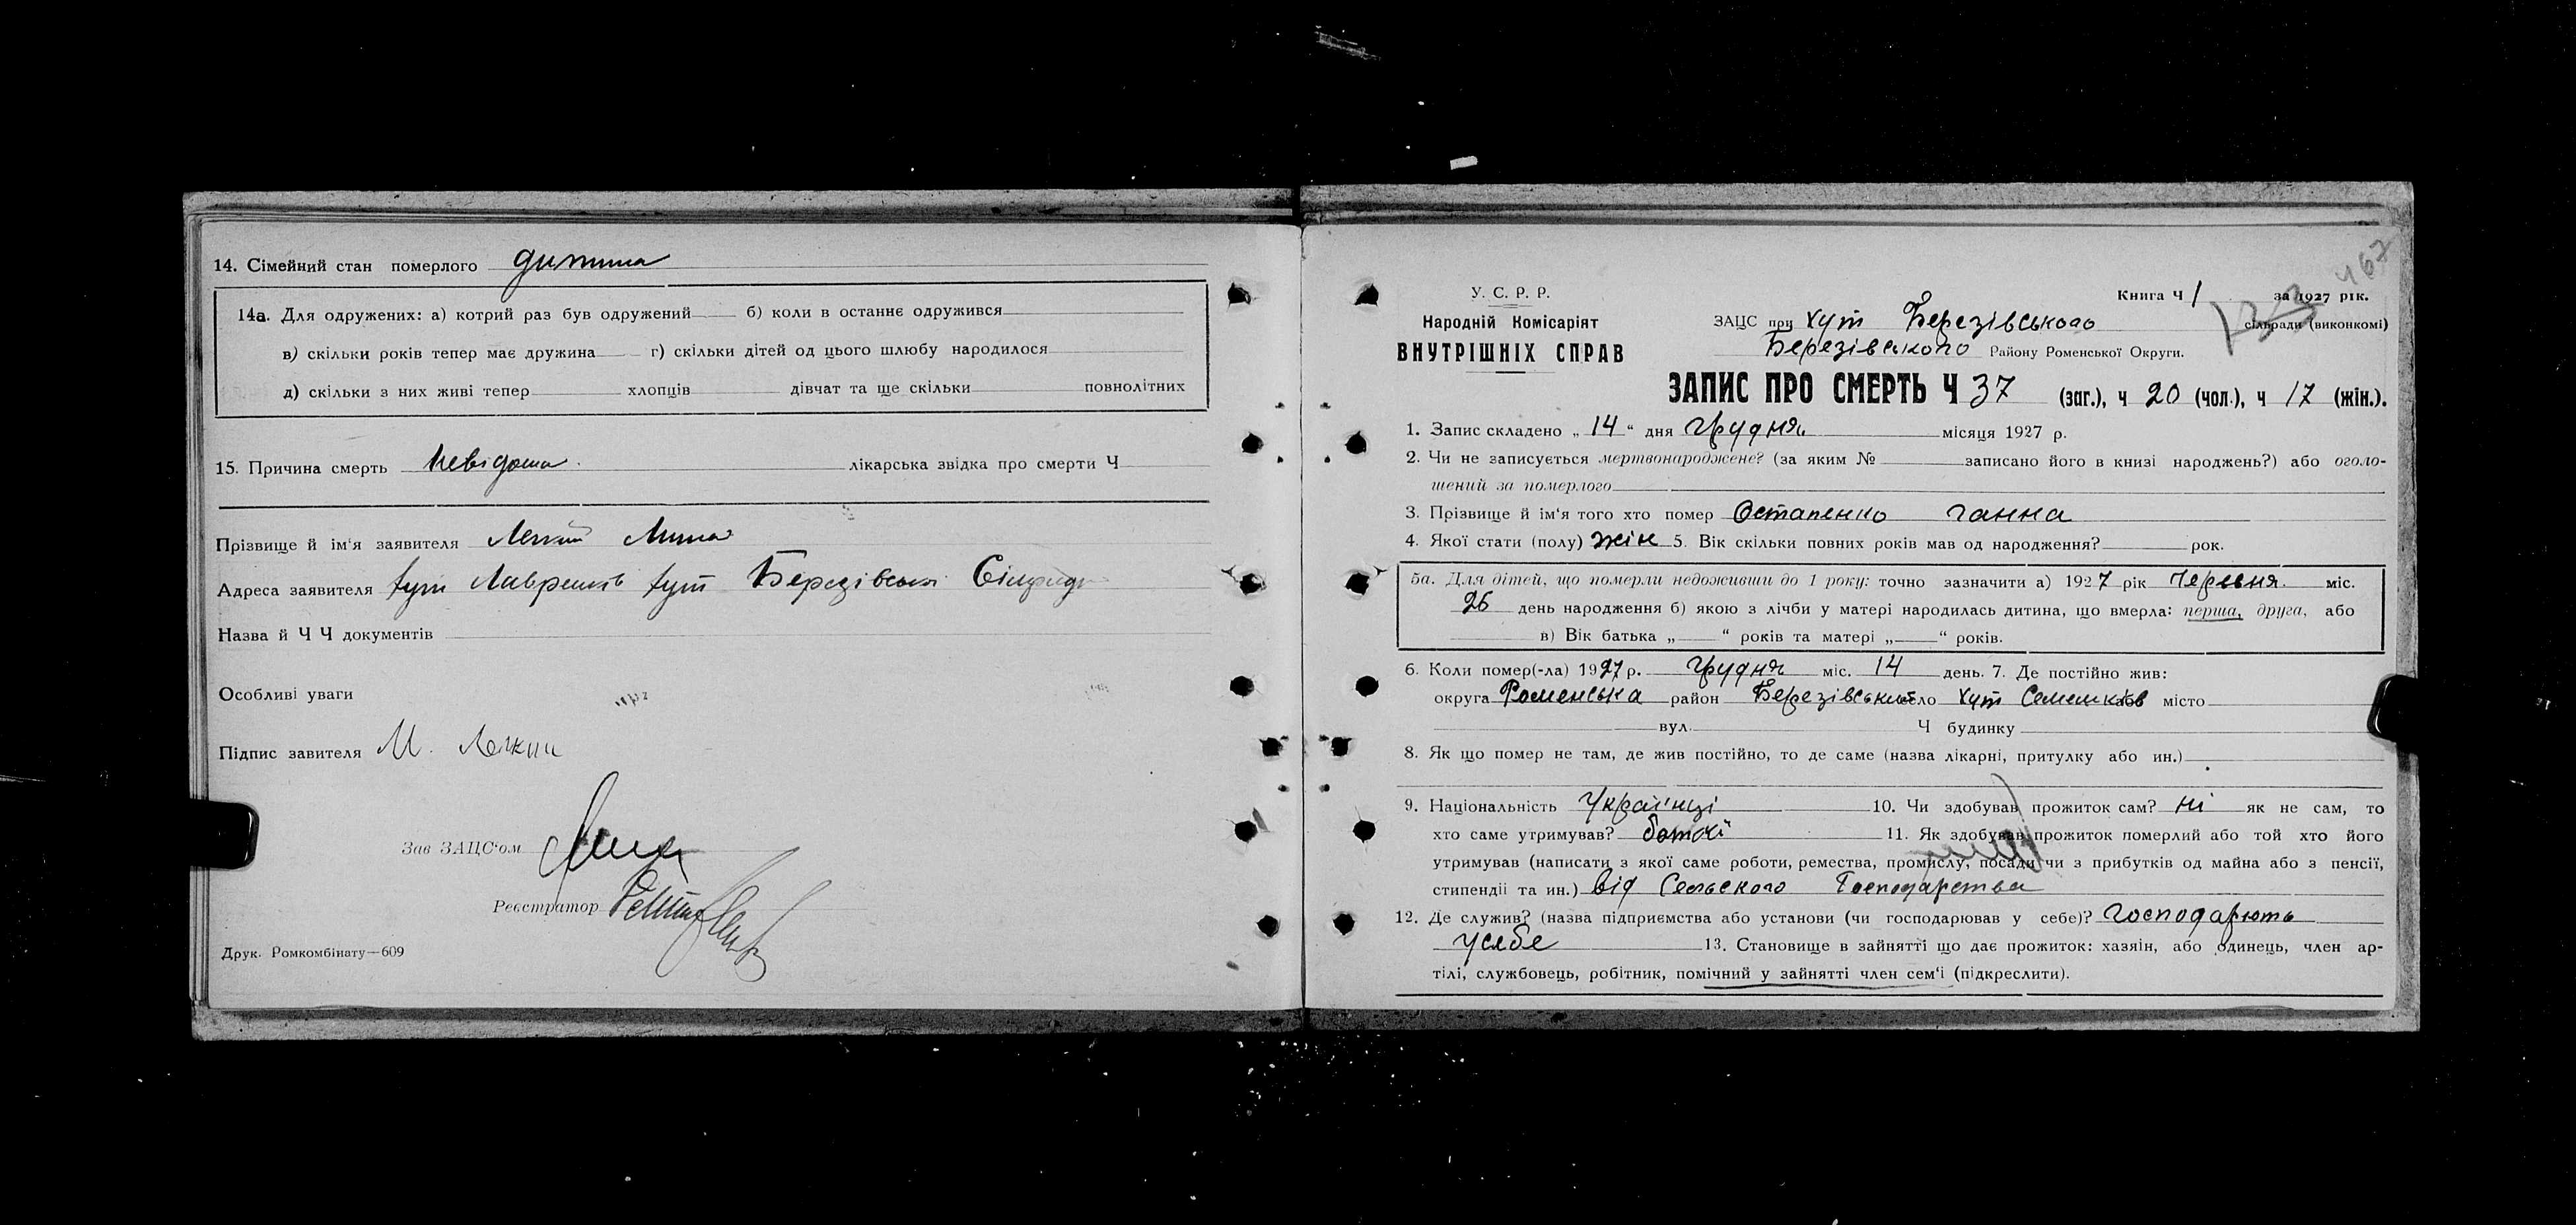 14. Сімейний стан померлого дитина
14а. Для одружених: а) котрий раз був одружений б) коли в останнє одружився
в) скільки років тепер має дружина г) скільки дітей од цього шлюбу народилося
д) скільки з них живі тепер хлопців дівчат та ще скільки повнолітних
15. Причина смерть Невідома. лікарська звідка про смерти Ч
Прізвище й ім'я заявителя Легкий
Адреса заявителя хут хут Березівської Сільради
Назва й Ч Ч документів
Особливі уваги
Підпис завителя М. Легкий
Зав ЗАЦС'ом
Реєстратор
Друк. Ромкомбінату—609
467
У. С. Р. Р.
Книга Ч 1 за 1927 рік.
Народній Комісаріят
ВНУТРІШНІХ СПРАВ
ЗАЦС при Хут Березівського сільради (виконкомі)
Березівського Району Роменської Округи.
ЗАПИС ПРО СМЕРТЬ Ч 37 (заг.), ч 20 (чол.), ч 17 (жін.).
1. Запис складено „ 14 “ дня Грудня місяця 1927 р.
2. Чи не записується мертвонароджене? (за яким № записано його в книзі народжень?) або оголо-
шений за померлого
3. Прізвище й ім'я того хто помер Остапенко Ганна
4. Якої стати (полу) жін 5. Вік скільки повних років мав од народження? рок.
5а. Для дітей, що померли недоживши до 1 року: точно зазначити а) 1927 рік Червня міс.
26 день народження б) якою з лічби у матері народилась дитина, що вмерла: перша, друга, або
в) Вік батька „ “ років та матері „ “ років.
6. Коли помер(-ла) 1927 р. Грудня міс. 14 день. 7. Де постійно жив:
округа Роменська район Березівський село Хут Семешків або місто
вул. Ч будинку
8. Як що помер не там, де жив постійно, то де саме (назва лікарні, притулку або ин.)
9. Національність Українці 10. Чи здобував прожиток сам? ні як не сам, то
хто саме утримував? батькі 11. Як здобував прожиток померлий або той хто його
утримував (написати з якої саме роботи, ремества, промислу, посади чи з прибутків од майна або з пенсії,
стипендії та ин.) Від Сельского Господарства
12. Де служив? (назва підприємства або установи (чи господарював у себе)? господарють
усебе 13. Становище в зайнятті що дає прожиток: хазяін, або одинець, член ар-
тілі, службовець, робітник, помічний у зайнятті член сем'ї (підкреслити).